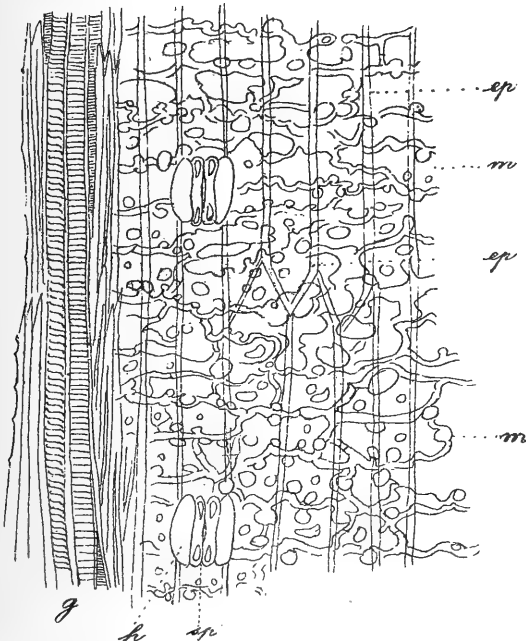 ep
m
ep
m
g
h sp